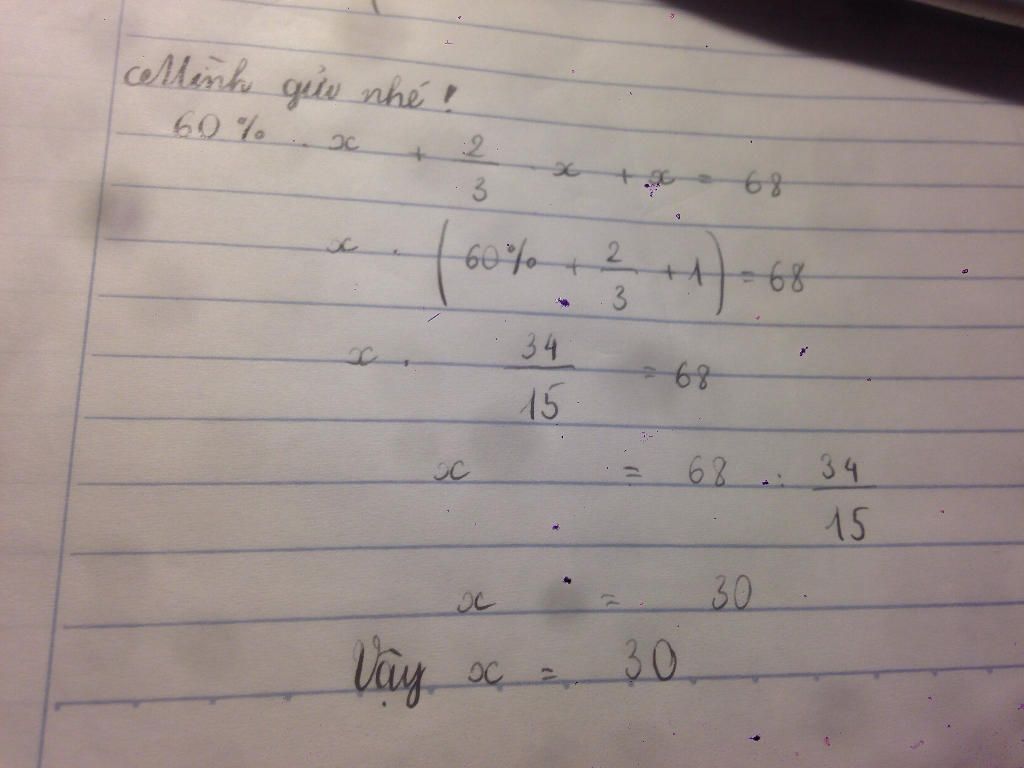 Mình gửi nhé!
60% . x + 2/3 x + x = 68
x . (60% + 2/3 + 1) = 68
x . 34/15 = 68
x = 68 : 34/15
x = 30
Vậy x = 30